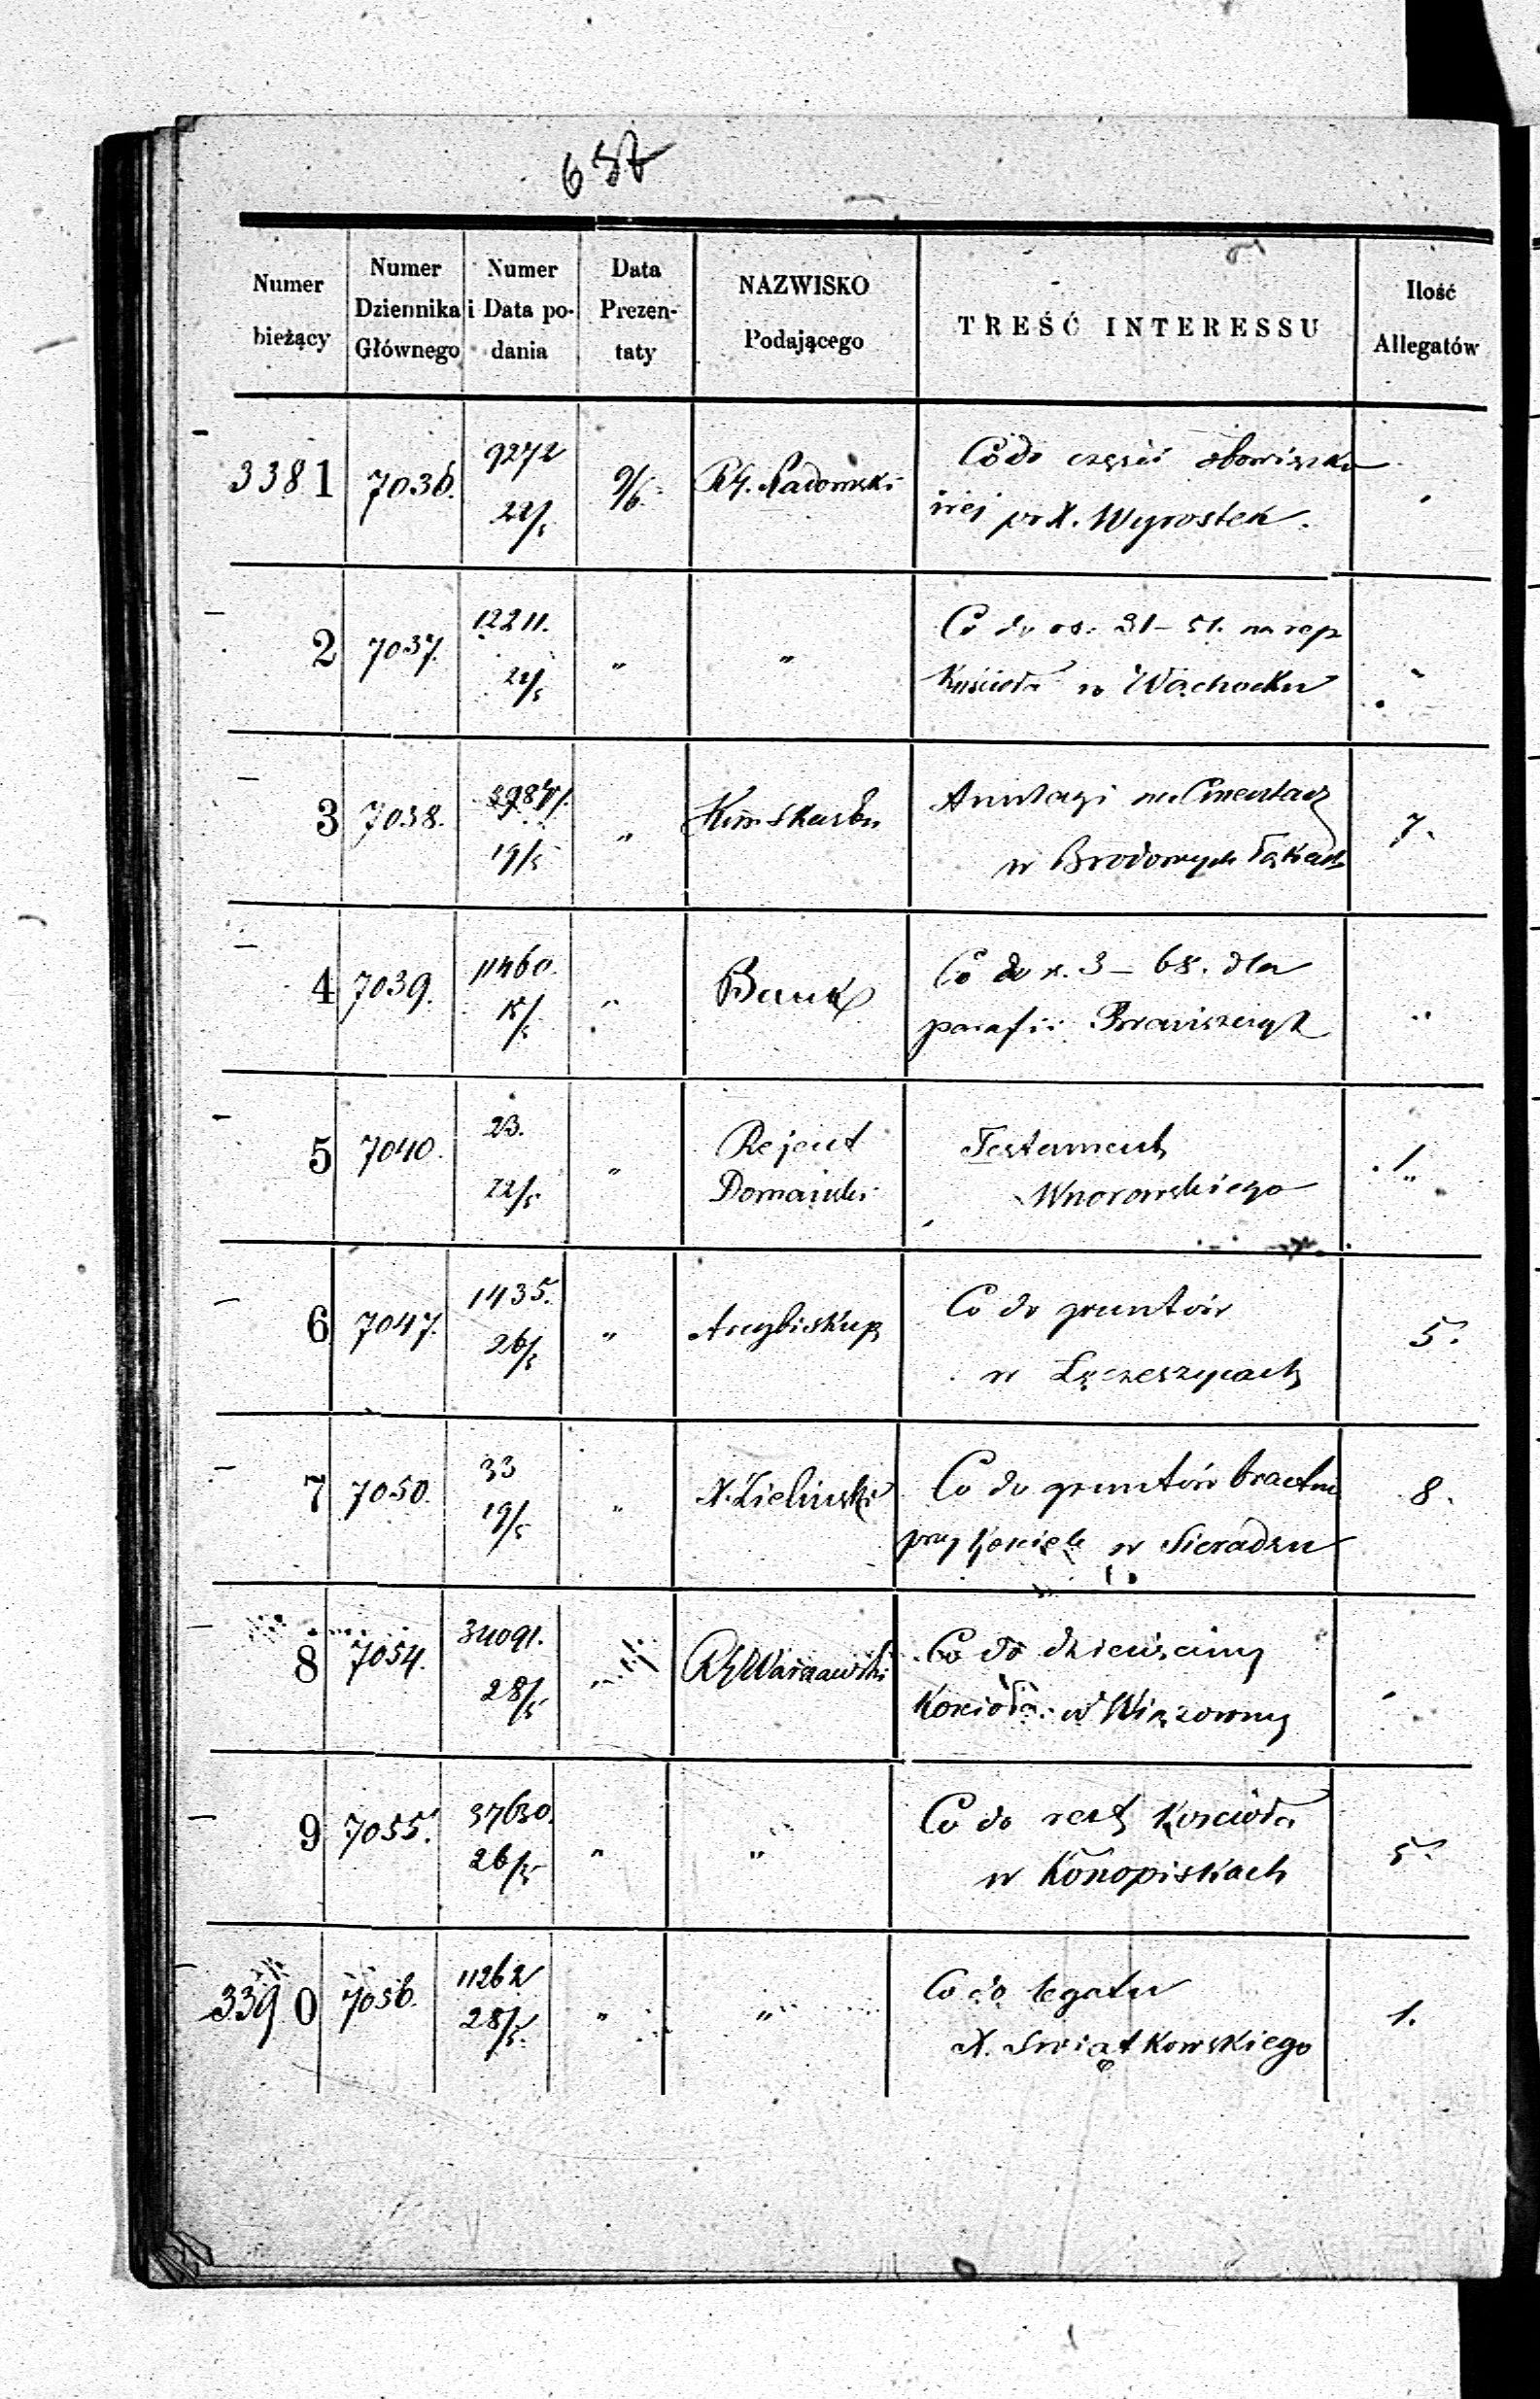 657
Numer bieżący
Numer Dziennika Głównego
Numer i Data podania
Data Prezentaty
NAZWISKO Podającego
TREŚĆ INTERESSU
Ilość Allegatów
3381 7036. 9272 22/5 9/6 RG. Radomski Co do części
pr X. Wyrostek.
2 7037. 12211. 22/5 " " Co do rs. 31-51. na rep
Kościoła w Wąchocku "
3 7038. 19/5 " Kom. Skarbu na Cmentarz
w Brodowych Łąkach 7.
4 7039. 11460. 15/5 " Bank Co do r. 3-68. dla
parafii "
5 7040. 23. 22/5 " Rejent Testament
Domański Wnorowskiego 1"
6 7047. 1435. 26/5 " Arcybiskup Co do gruntów
w Łęczeszycach 5.
7 7050. 33 19/5 " X. Zieliński Co do gruntów bractw
przy Kościele w Sieradzu 8.
8 7054. 34091. 28/5 " RG Warszawski Co do dziesięciny
Kościoła w Wiązowny
9 7055. 37630. 26/5 " " Co do rest Kościoła
w Konopiskach 5.
3390 7056. 11262 28/5. " " Co do legatu
X. Swiątkowskiego 1.